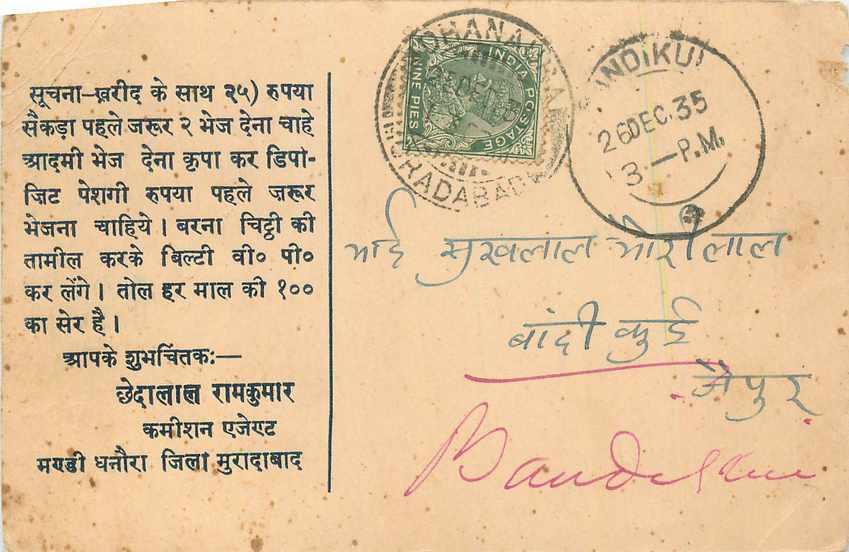 सूचना–ख़रीद के साथ २५) रुपया
सैकड़ा पहले जरूर २ भेज देना चाहे
आदमी भेज देना कृपा कर डिपो-
जिट पेशगी रुपया पहले जरूर
भेजना चाहिये। बरना चिट्ठी की
तामील करके बिल्टी वी० पी०
कर लेंगे। तोल हर माल की १००
का सेर है।
आपके शुभचिंतक:—
छेदालाल रामकुमार
कमीशन एजेण्ट
मण्डी धनौरा जिला मुरादाबाद
DHANAURA
MORADABAD
INDIA POSTAGE
NINE PIES
BANDIKUI
26 DEC. 35
3 — P.M.
भाई सुखलाल भौरीलाल
बांदी कुई
जैपुर
Bandikui